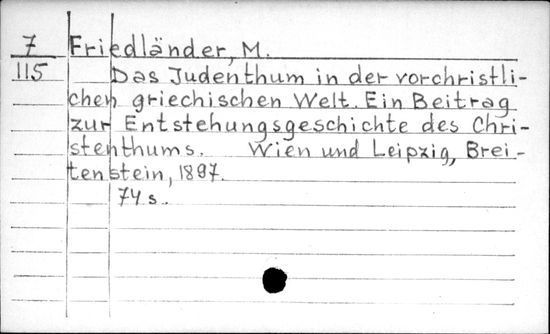 7 Friedländer, M.
115 Das Judenthum in der vorchristli-
chen griechischen Welt. Ein Beitrag
zur Entstehungsgeschichte des Chri-
stenthums. Wien und Leipzig, Brei-
tenstein, 1897.
74 s.